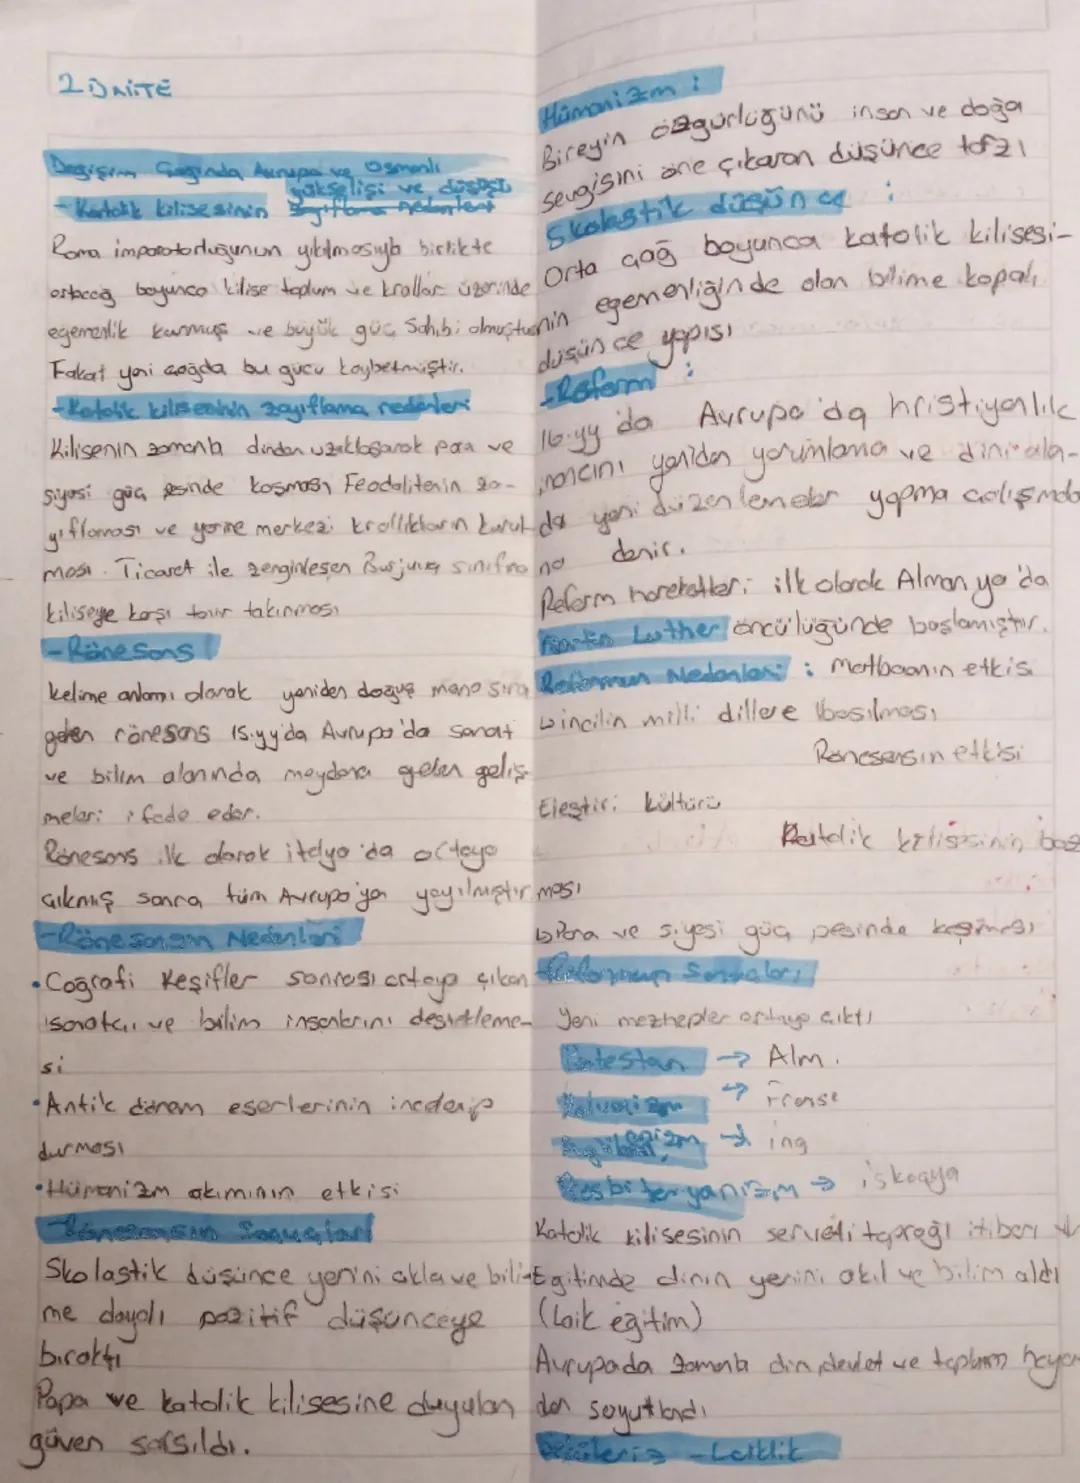 2. ÜNİTE
Değişim Çağında Avrupa ve Osmanlı
yükselişi ve düşüşü
- Katolik kilisesinin
Roma imparatorluğunun yıkılmasıyla birlikte
ortaçağ boyunca kilise toplum ve krallar üzerinde
egemenlik kurmuş ve büyük güç Sahibi olmuştur
Fakat yeni çağda bu gücü kaybetmiştir.
- Katolik kilisesinin zayıflama nedenleri
Kilisenin zamanla dinden uzaklaşarak para ve
siyasi güç peşinde koşması Feodalitenin za-
yıflaması ve yerine merkezi krallıkların kurul
ması. Ticaret ile zenginleşen Burjuva sınıfına
kiliseye karşı tavır takınması
- Rönesans
kelime anlamı olarak yeniden doğuş manasına
gelen rönesans 15.yy'da Avrupa'da sanat
ve bilim alanında meydana gelen geliş-
meleri ifade eder.
Rönesans ilk olarak italya'da ortaya
çıkmış sonra tüm Avrupa'ya yayılmıştır
- Rönesansın Nedenleri
• Coğrafi Keşifler sonrası ortaya çıkan
sanatçı ve bilim insanlarını destekleme-
si
• Antik dönem eserlerinin incelenip
durması
• Hümanizm akımının etkisi
- Rönesansın Sonuçları
Skolastik düşünce yerini akla ve bili-
me dayalı pozitif düşünceye
bıraktı
Papa ve katolik kilisesine duyulan
güven sarsıldı.
Hümanizm :
Bireyin özgürlüğünü insan ve doğa
sevgisini öne çıkaran düşünce tarzı
Skolastik düşünce :
Orta çağ boyunca katolik kilisesi-
nin egemenliğinde olan bilime kapalı
düşünce yapısı
- Reform :
16.yy'da Avrupa'da hristiyanlık
inancını yeniden yorumlama ve dini ala-
da yeni düzenlemeler yapma çalışmala
na denir.
Reform hareketleri ilk olarak Almanya'da
Martin Luther öncülüğünde başlamıştır.
Reformun Nedenleri : Matbaanın etkisi
↳ incilin milli dillere basılması
Rönesansın etkisi
Eleştiri kültürü
Katolik kilisesinin boz
ması
↳ Para ve siyasi güç peşinde koşması
Reformun Sonuçları
Yeni mezhepler ortaya çıktı
Protestan → Alm.
Kalvenizm → Franse
→ ing
Presbiteryanizm → iskoçya
Katolik kilisesinin serveti toprağı itibarı
Eğitimde dinin yerini akıl ve bilim aldı
(Laik eğitim)
Avrupada zamanla din, devlet ve toplum hayatı
dan soyutlandı
- Laiklik